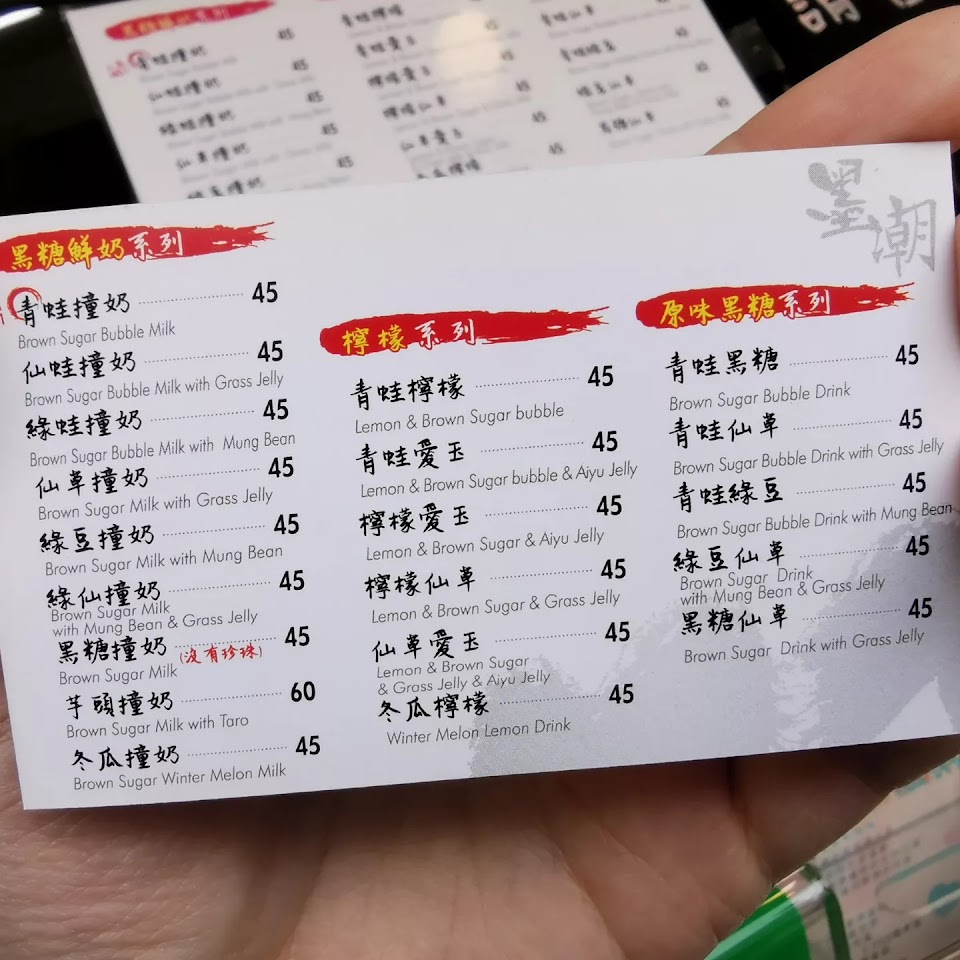 墨潮
黑糖鮮奶系列
青蛙撞奶 45
Brown Sugar Bubble Milk
仙蛙撞奶 45
Brown Sugar Bubble Milk with Grass Jelly
綠蛙撞奶 45
Brown Sugar Bubble Milk with Mung Bean
仙草撞奶 45
Brown Sugar Milk with Grass Jelly
綠豆撞奶 45
Brown Sugar Milk with Mung Bean
綠仙撞奶 45
Brown Sugar Milk
with Mung Bean & Grass Jelly
黑糖撞奶 (沒有珍珠) 45
Brown Sugar Milk
芋頭撞奶 60
Brown Sugar Milk with Taro
冬瓜撞奶 45
Brown Sugar Winter Melon Milk
檸檬系列
青蛙檸檬 45
Lemon & Brown Sugar bubble
青蛙愛玉 45
Lemon & Brown Sugar bubble & Aiyu Jelly
檸檬愛玉 45
Lemon & Brown Sugar & Aiyu Jelly
檸檬仙草 45
Lemon & Brown Sugar & Grass Jelly
仙草愛玉 45
Lemon & Brown Sugar
& Grass Jelly & Aiyu Jelly
冬瓜檸檬 45
Winter Melon Lemon Drink
原味黑糖系列
青蛙黑糖 45
Brown Sugar Bubble Drink
青蛙仙草 45
Brown Sugar Bubble Drink with Grass Jelly
青蛙綠豆 45
Brown Sugar Bubble Drink with Mung Bean
綠豆仙草 45
Brown Sugar Drink
with Mung Bean & Grass Jelly
黑糖仙草 45
Brown Sugar Drink with Grass Jelly